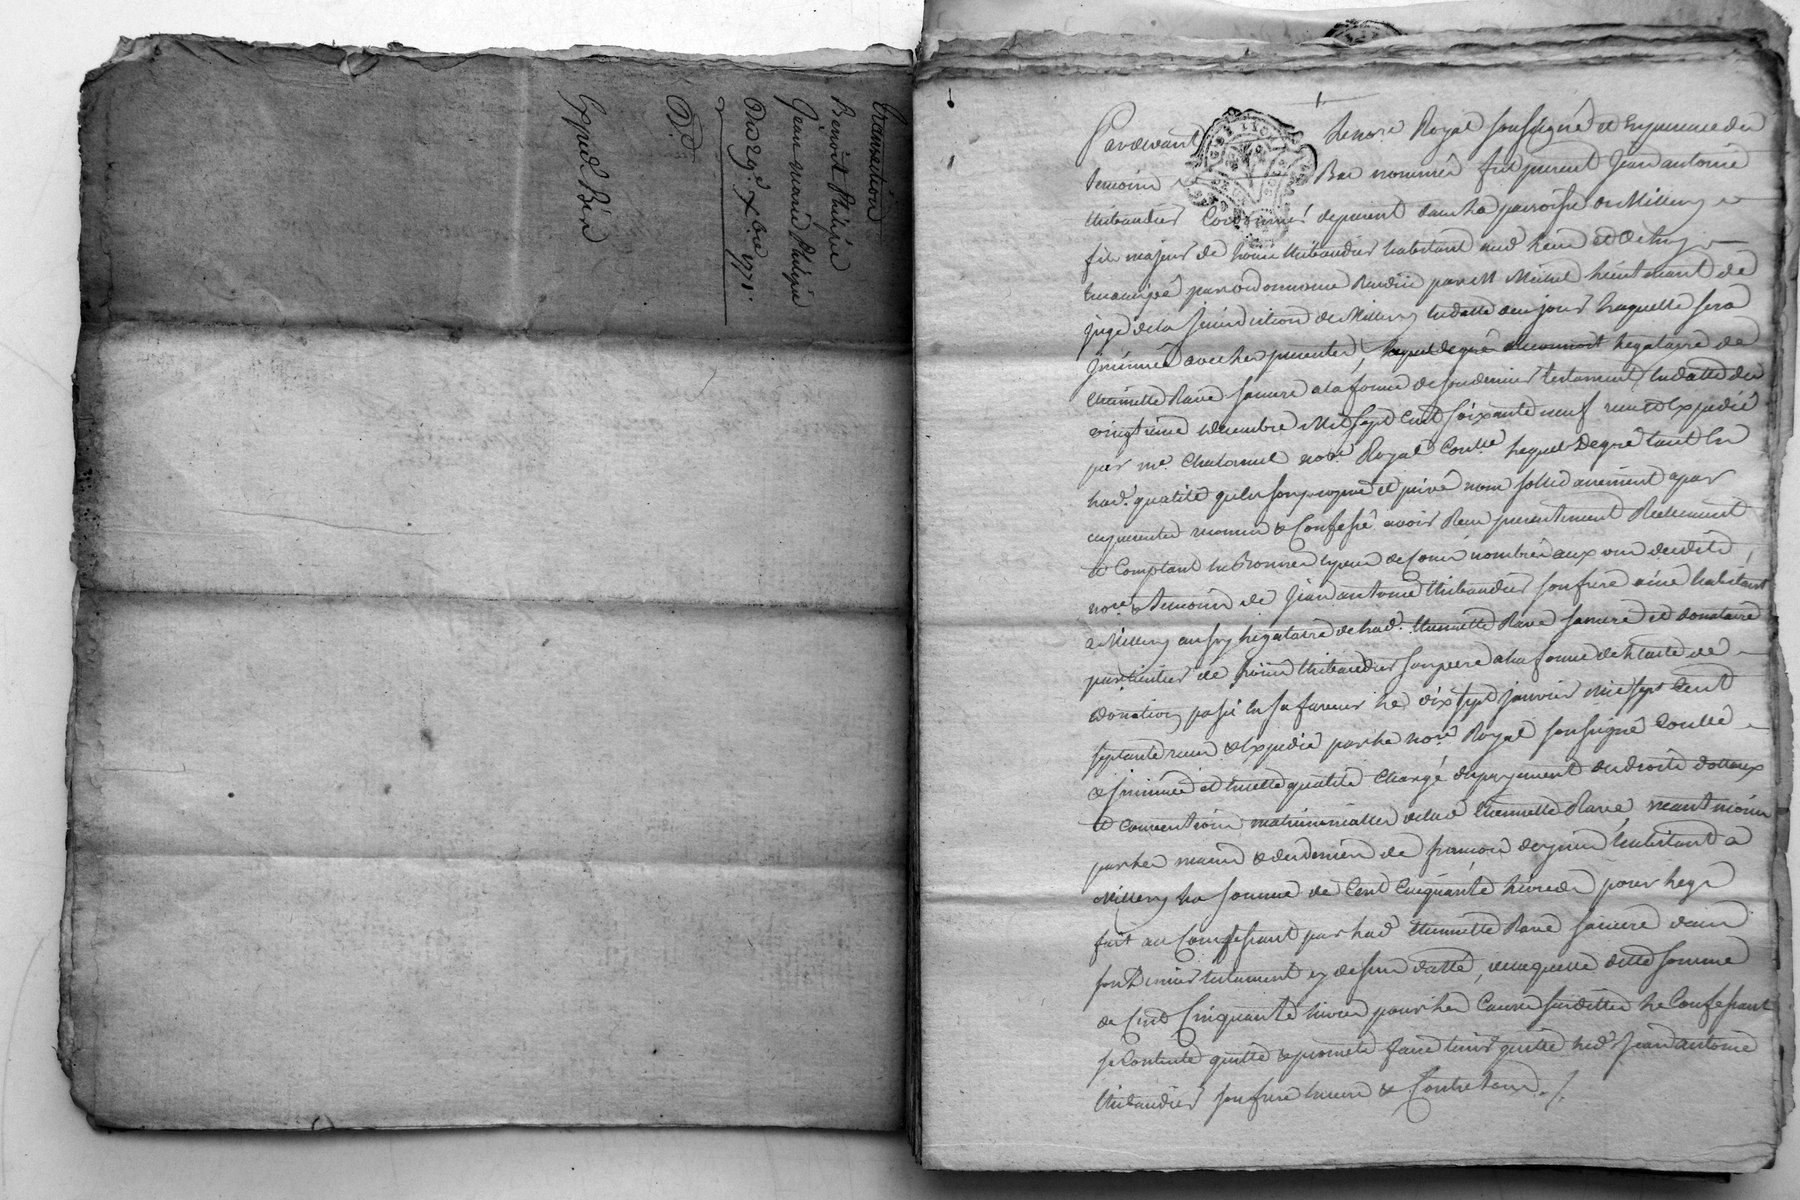 transaction
Benoist Philipie
Jean marie Philipie
Du 29e. Xbre 1771.
Expéd
Pardevant Le nore. Royal soussigné et En presence des
temoins Bas nommés fut present Jean antoine
thibaudier Cordonnier demeurant dans La parroisse de Millery
fils majeur de Louis thibaudier habitant aud. Lieu et de Luy
Emancipé par ordonnance Rendüe par M Michel Lieutenant de
juge de la jurisdiction de Millery En datte de ce jour Laquelle sera
jointe avec Les presentes, Lequel de gré Legataire de
thiennette Ravé sa mere a la forme de son dernier testament En datte du
vingtieme decembre Mil sept Cent soixante neuf receu et Expedié
par me. Chatonnet nore. Royal Conlle. Lequel De gré tant En
lad. qualité qu'En son propre et privé nom sollidairement a par
Confesse avoir Receu presentement Réellement
et Comptant En Bonnes Especes de Cours nombrées aux vües dud.
nore. & temoins de Jean antoine thibaudier son frere ainé habitant
a Millery aussy Legataire de lad. thiennette Ravé sa mere et donataire
particulier de Louis thibaudier son pere a la forme de L'acte de
donation passé En sa faveur Le dix sept janvier mil sept Cent
septante receu & Expedié par Le nore. Royal soussigné Conlle
& insinuée et En cette qualité Chargé du payement des droits dottaux
et Conventions matrimonialles de lad. thiennette Ravé, neantmoins
par Les mains & des deniers de francois dejoin habitant a
Millery La somme de Cent Cinquante Livres pour Legs
fait au Confessant par Lad. thiennette Ravé sa mere dans
son Dernier testament cy dessus datté, de laquelle ditte somme
de Cent Cinquante Livres pour Les Causes susdittes Le Confessant
se Contente quitte & promet faire tenir quitte led. Jean antoine
thibaudier son frere Envers & Contre tous. /.